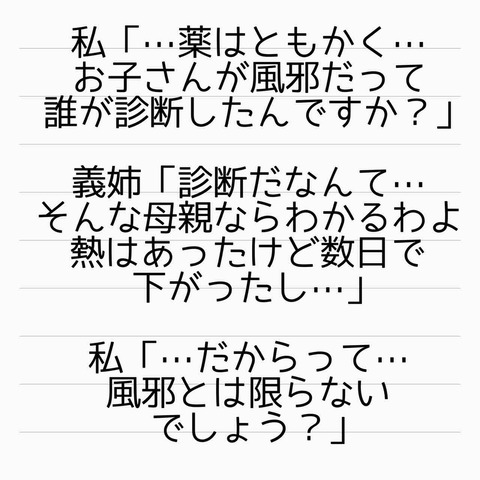 私「…薬はともかく…
お子さんが風邪だって
誰が診断したんですか？」
義姉「診断だなんて…
そんな母親ならわかるわよ
熱はあったけど数日で
下がったし…」
私「…だからって…
風邪とは限らない
でしょう？」